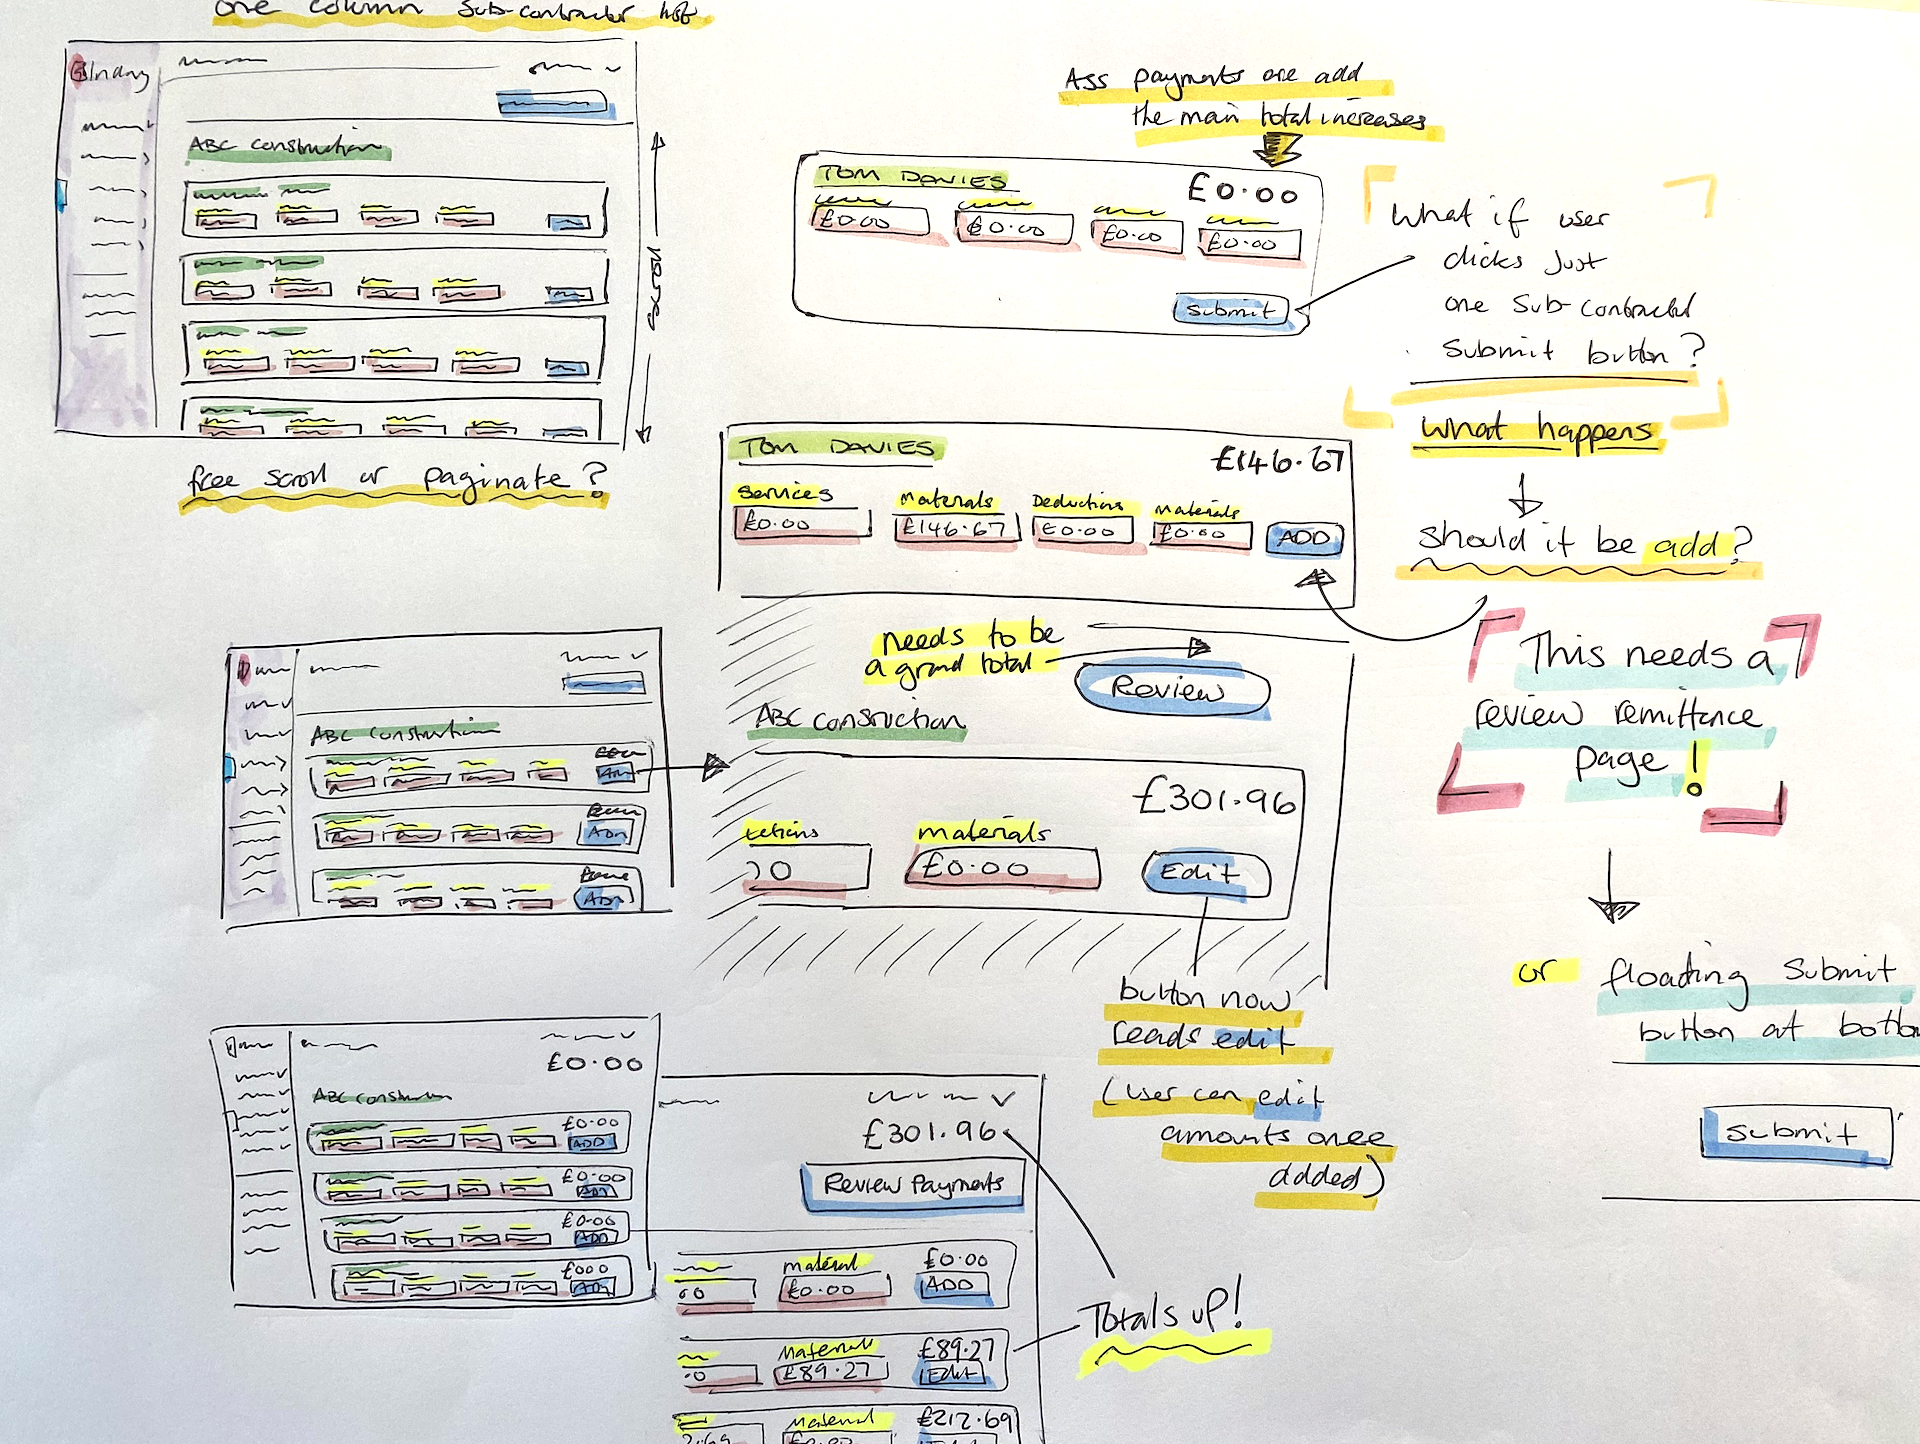 one column sub-contractor list
ABC construction
free scroll or paginate?
Ass payments are add
the main total increases
TOM DAVIES
£0.00
£0.00
£0.00
£0.00
£0.00
submit
What if user
clicks Just
one Sub-contractor
Submit button?
what happens
should it be add?
TOM DAVIES
£146.67
Services
Materials
Deductions
Materials
£0.00
£146.67
£0.00
£0.00
ADD
needs to be
a grand total
Review
ABC construction
£301.96
Materials
£0.00
Edit
button now
reads edit
(user can edit
amounts once
added)
This needs a
review remittance
page!
or floating Submit
button at
submit
ABC construction
ADD
ADD
ADD
£0.00
£0.00
ADD
£0.00
ADD
£0.00
ADD
ADD
£301.96
Review Payments
material
£0.00
£0.00
ADD
Material
£89.27
£89.27
Edit
Material
£212.69
Totals up!